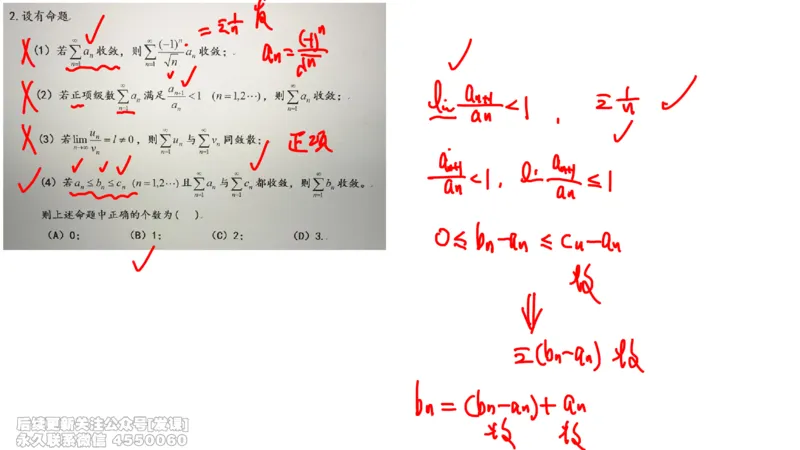 2. 设有命题
(1) 若 ∑_{n=1}^{∞} a_n 收敛, 则 ∑_{n=1}^{∞} (-1)^n/√n a_n 收敛;
= ∑ 1/n 发
a_n = (-1)^n/√n
(2) 若正项级数 ∑_{n=1}^{∞} a_n 满足 a_{n+1}/a_n < 1 (n=1,2⋯), 则 ∑_{n=1}^{∞} a_n 收敛;
(3) 若 lim_{n→∞} u_n/v_n = l ≠ 0, 则 ∑_{n=1}^{∞} u_n 与 ∑_{n=1}^{∞} v_n 同敛散;
正项
(4) 若 a_n ≤ b_n ≤ c_n (n=1,2⋯) 且 ∑_{n=1}^{∞} a_n 与 ∑_{n=1}^{∞} c_n 都收敛, 则 ∑_{n=1}^{∞} b_n 收敛。
则上述命题中正确的个数为( ).
(A) 0; (B) 1; (C) 2; (D) 3.
lim a_{n+1}/a_n < 1 , ∑ 1/n
a_{n+1}/a_n < 1, lim a_{n+1}/a_n ≤ 1
0 ≤ b_n - a_n ≤ c_n - a_n
收
⇓
∑(b_n - a_n) 收
b_n = (b_n - a_n) + a_n
收 收
后续更新关注公众号[发课]
永久联系微信 4550060